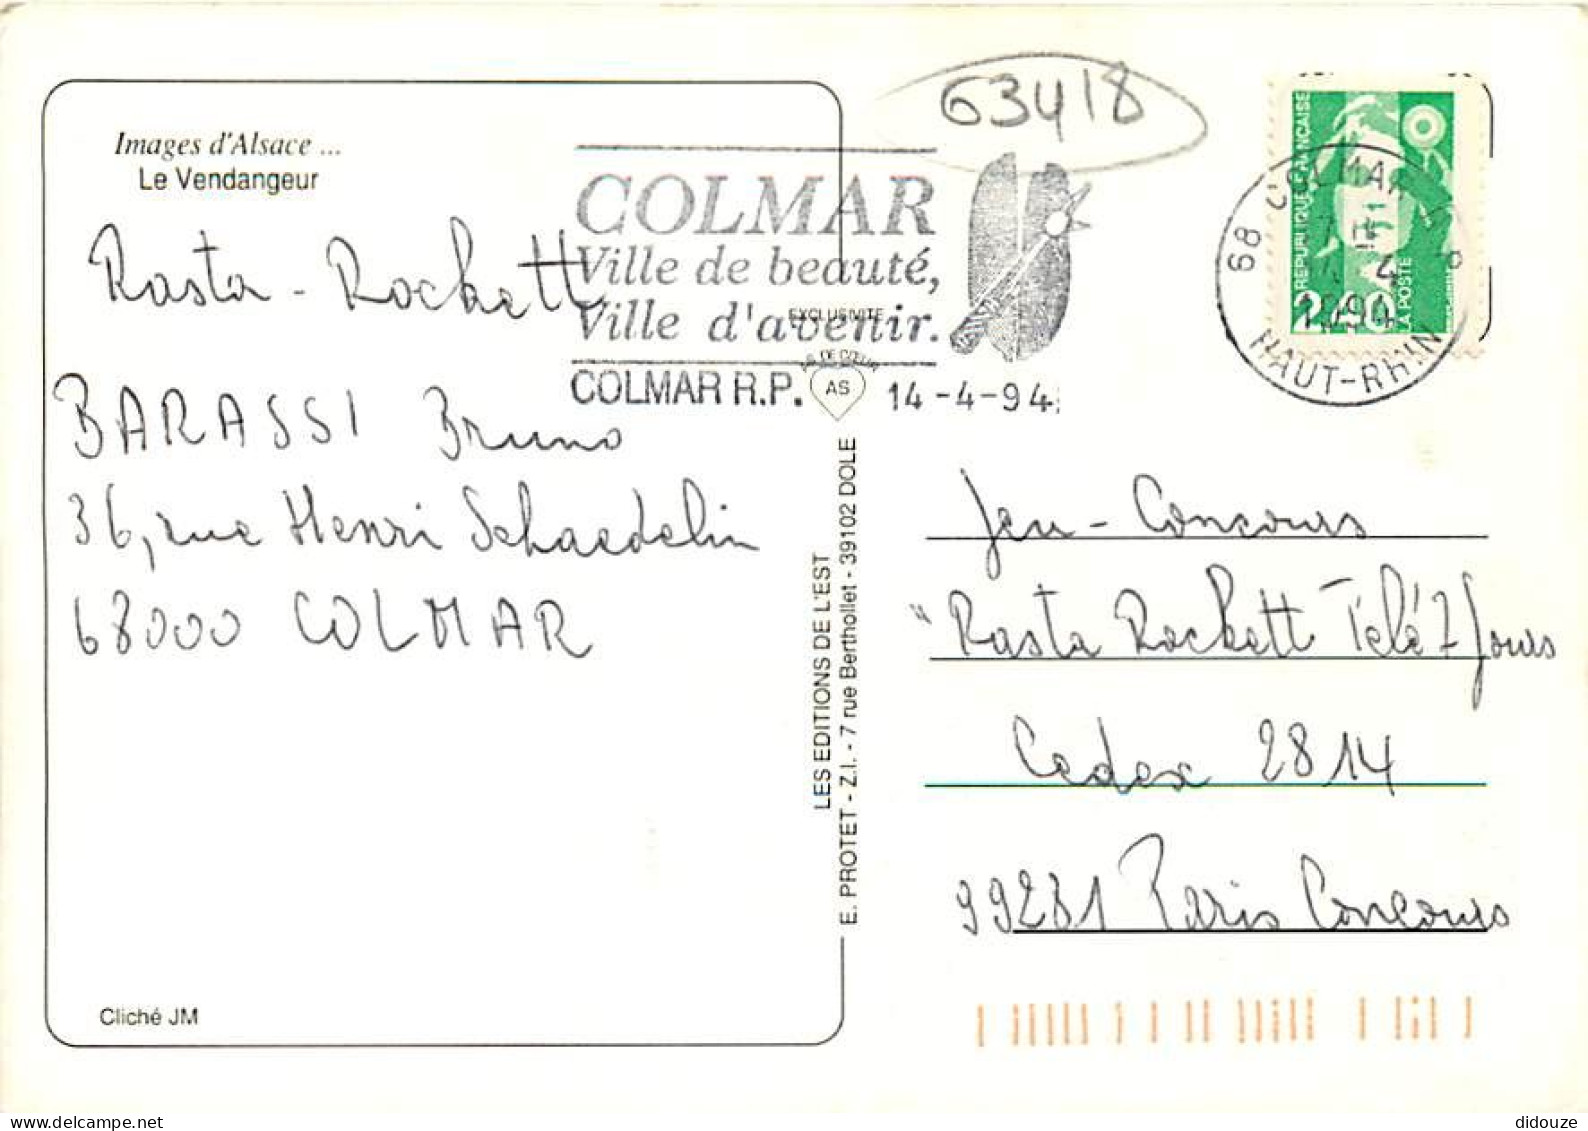 63418
Images d'Alsace ...
Le Vendangeur
COLMAR
Ville de beauté,
Ville d'avenir.
COLMAR R.P.
14-4-94
68 COLMAR R.P.
14-4
1994
HAUT-RHIN
REPUBLIQUE FRANÇAISE
2,40
LA POSTE
EXCLUSIVITE
AS DE CŒUR
AS
Rasta - Rockett
BARASSI Bruno
36, rue Henri Schaedelin
68000 COLMAR
LES EDITIONS DE L'EST
E. PROTET - Z.I. - 7 rue Berthollet - 39102 DOLE
Jeu - Concours
"Rasta Rockett Télé 7 Jours
Cedex 2814
99281 Paris Concours
Cliché JM
didouze